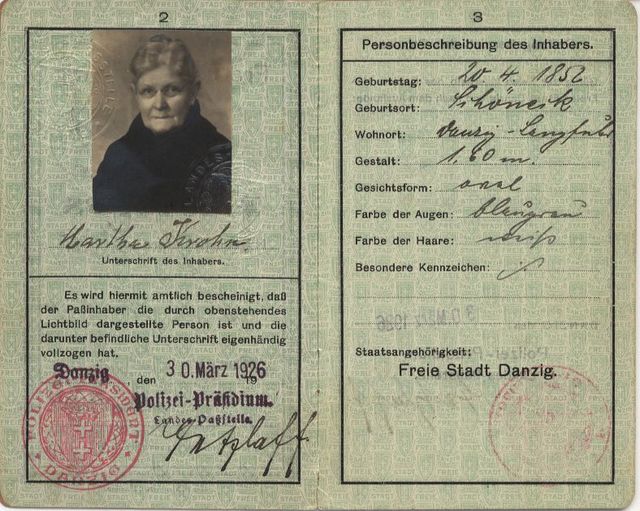 2
Martha Krohn.
Unterschrift des Inhabers.
Es wird hiermit amtlich bescheinigt, daß
der Paßinhaber die durch obenstehendes
Lichtbild dargestellte Person ist und die
darunter befindliche Unterschrift eigenhändig
vollzogen hat.
Danzig, den 30. März 1926
19
Polizei-Präsidium.
Landes-Paßstelle.
POLIZEI
DANZIG
3
Personbeschreibung des Inhabers.
Geburtstag: 20. 4. 1852
Geburtsort: Schöneck
Wohnort: Danzig-Langfuhr
Gestalt: 1,60 m.
Gesichtsform: oval
Farbe der Augen: blaugrau
Farbe der Haare: weiß
Besondere Kennzeichen:
Staatsangehörigkeit:
Freie Stadt Danzig.